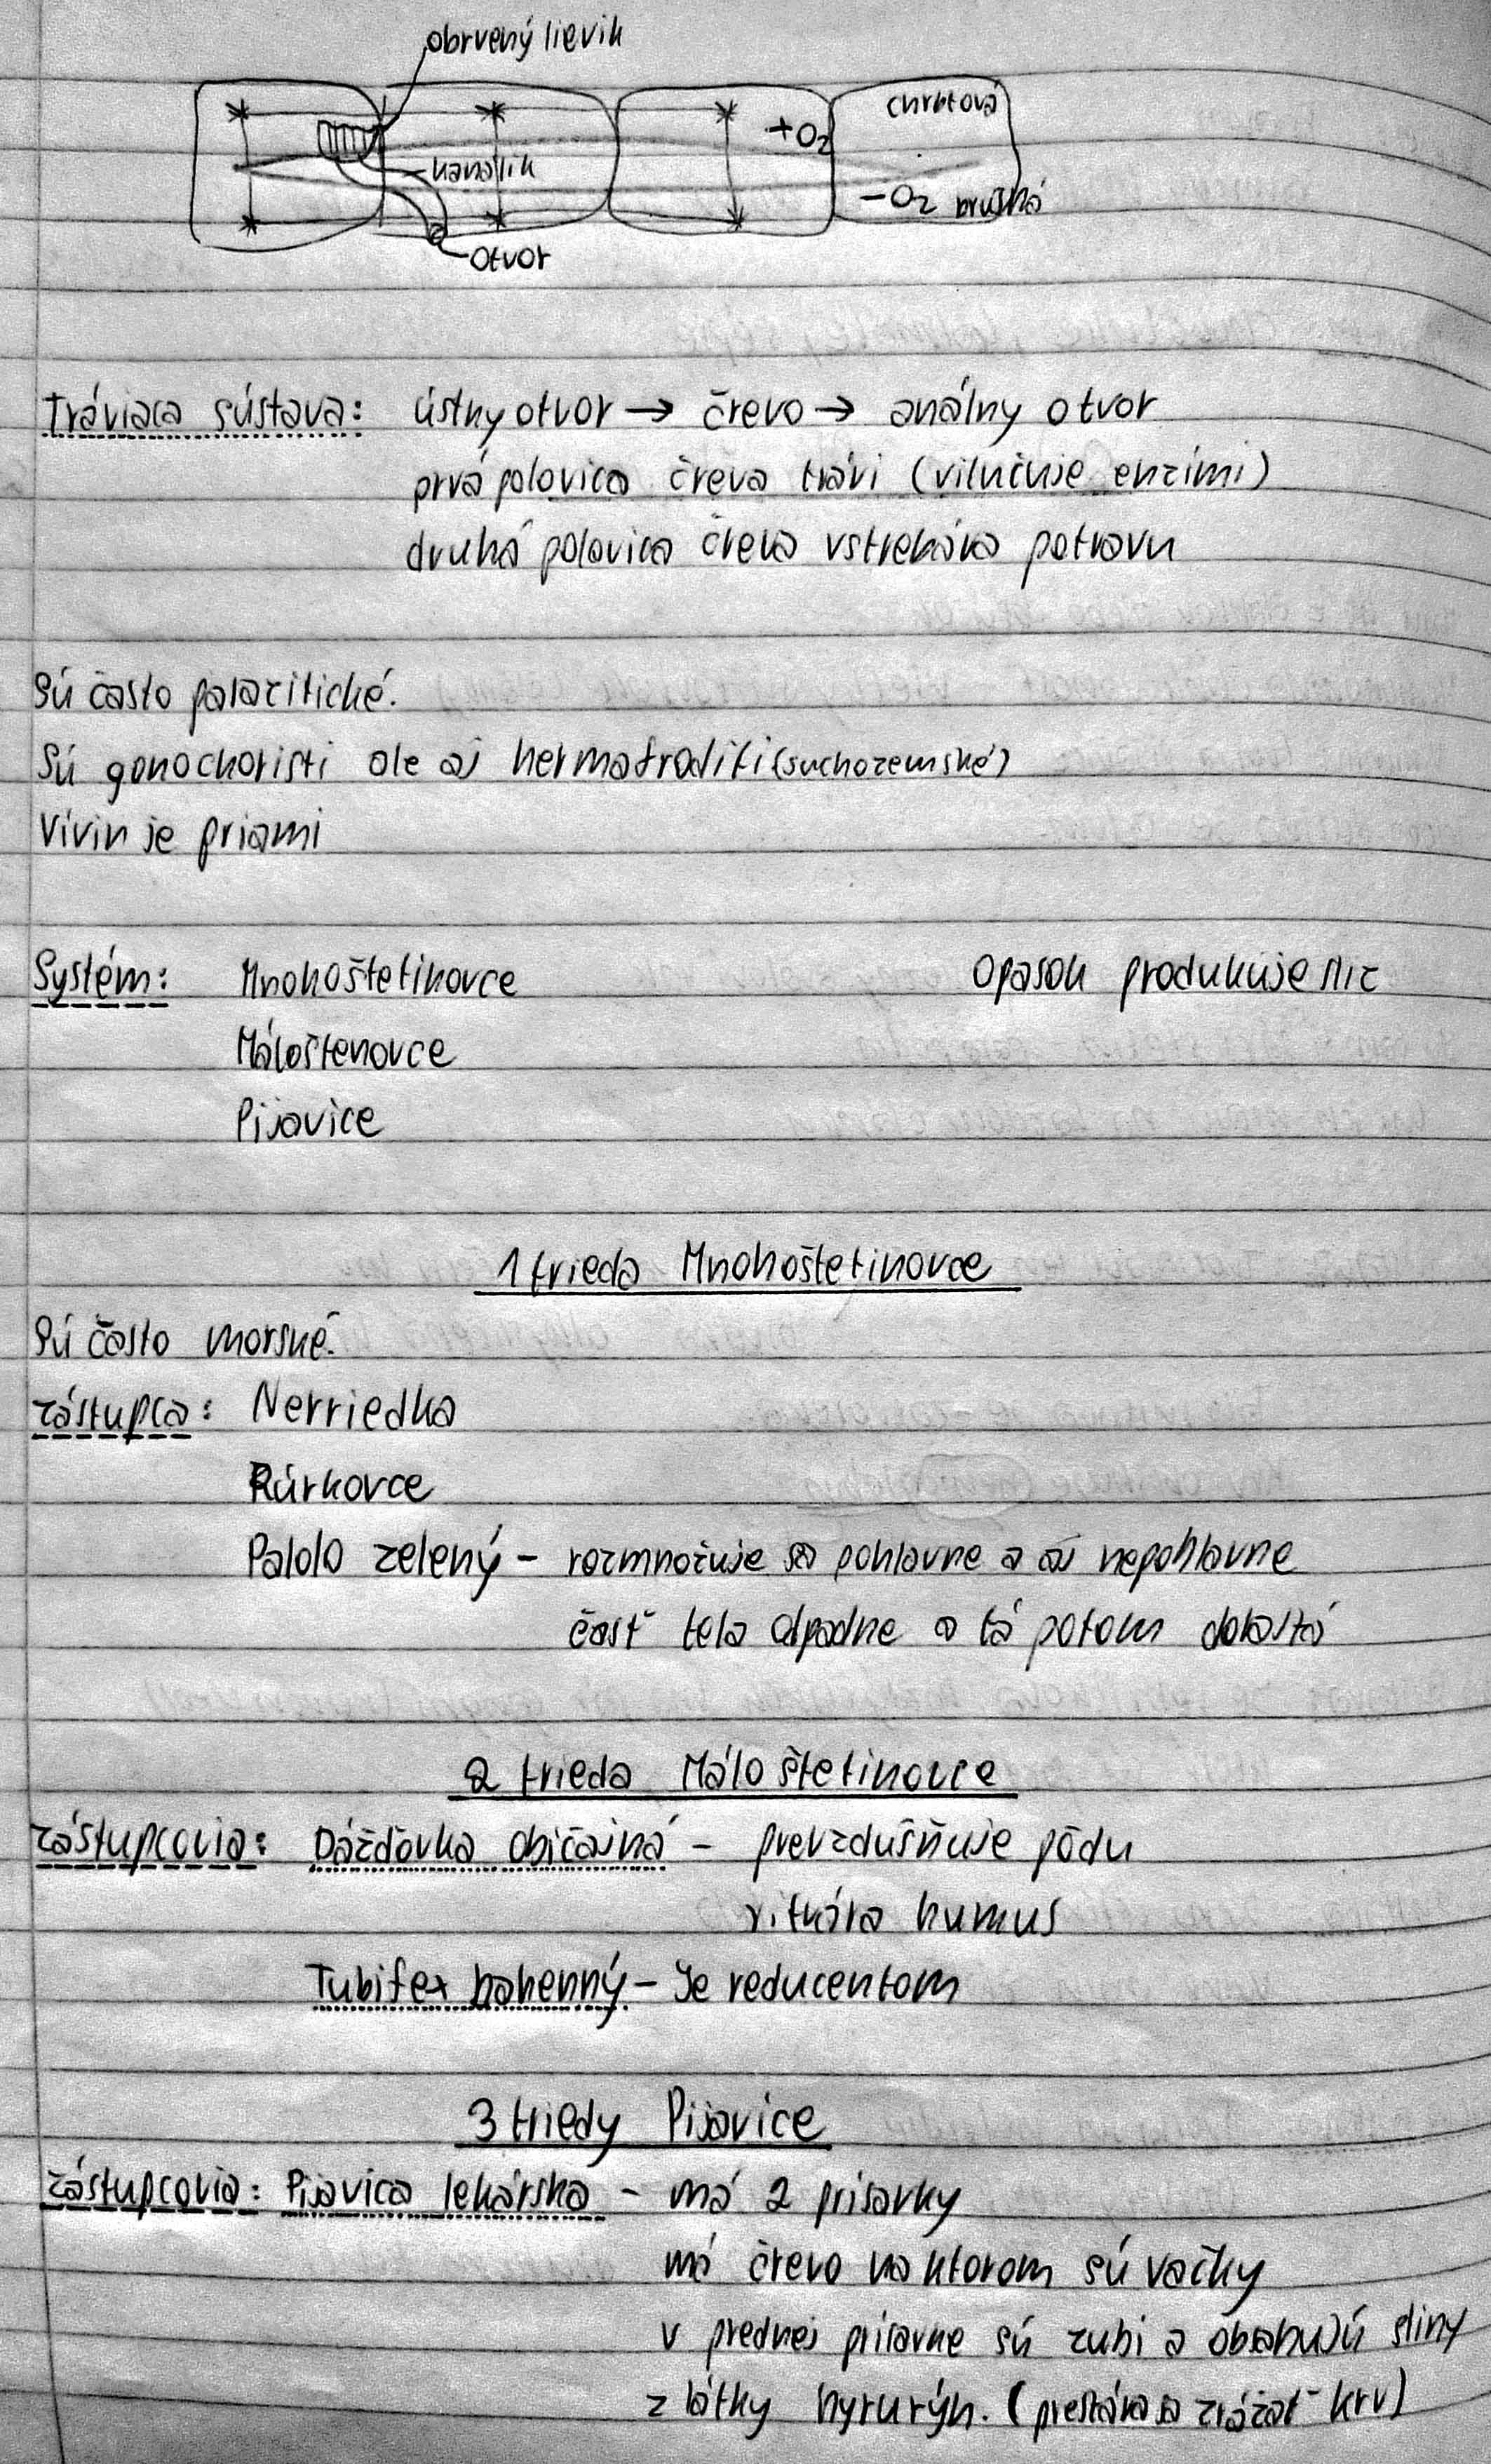 obrvený lievik
chrbtová
+O2
kanálik
-O2 brušná
otvor
Tráviaca sústava: ústny otvor → črevo → análny otvor
prvá polovica čreva trávi (vilučuje enzimi)
druhá polovica čreva vstrekáva potravu
Sú často parazitické.
Sú gonochoristi ale aj hermafroditi (suchozemské)
Vívin je priami
Systém: Mnohoštetinovce Opasok produkuje sliz
Máloštenovce
Pijavice
1 trieda Mnohoštetinovce
Sú často morské.
zástupca: Nerriedka
Rúrkovce
Palolo zelený - rozmnožuje sa pohlavne a aj nepohlavne
časť tela odpadne a tá potom dorastá
2 trieda Máloštetinovce
zástupcovia: Dážďovka običajná - prevzdušňuje pôdu
vitvára humus
Tubifex bahenný - Je reducentom
3 triedy Pijavice
zástupcovia: Pijavica lekárska - má 2 prísavky
má črevo na ktorom sú vačky
v prednej prísavke sú zubi a obsahujú sliny
z látky hyrurýn. (prestáva sa zrážať krv)